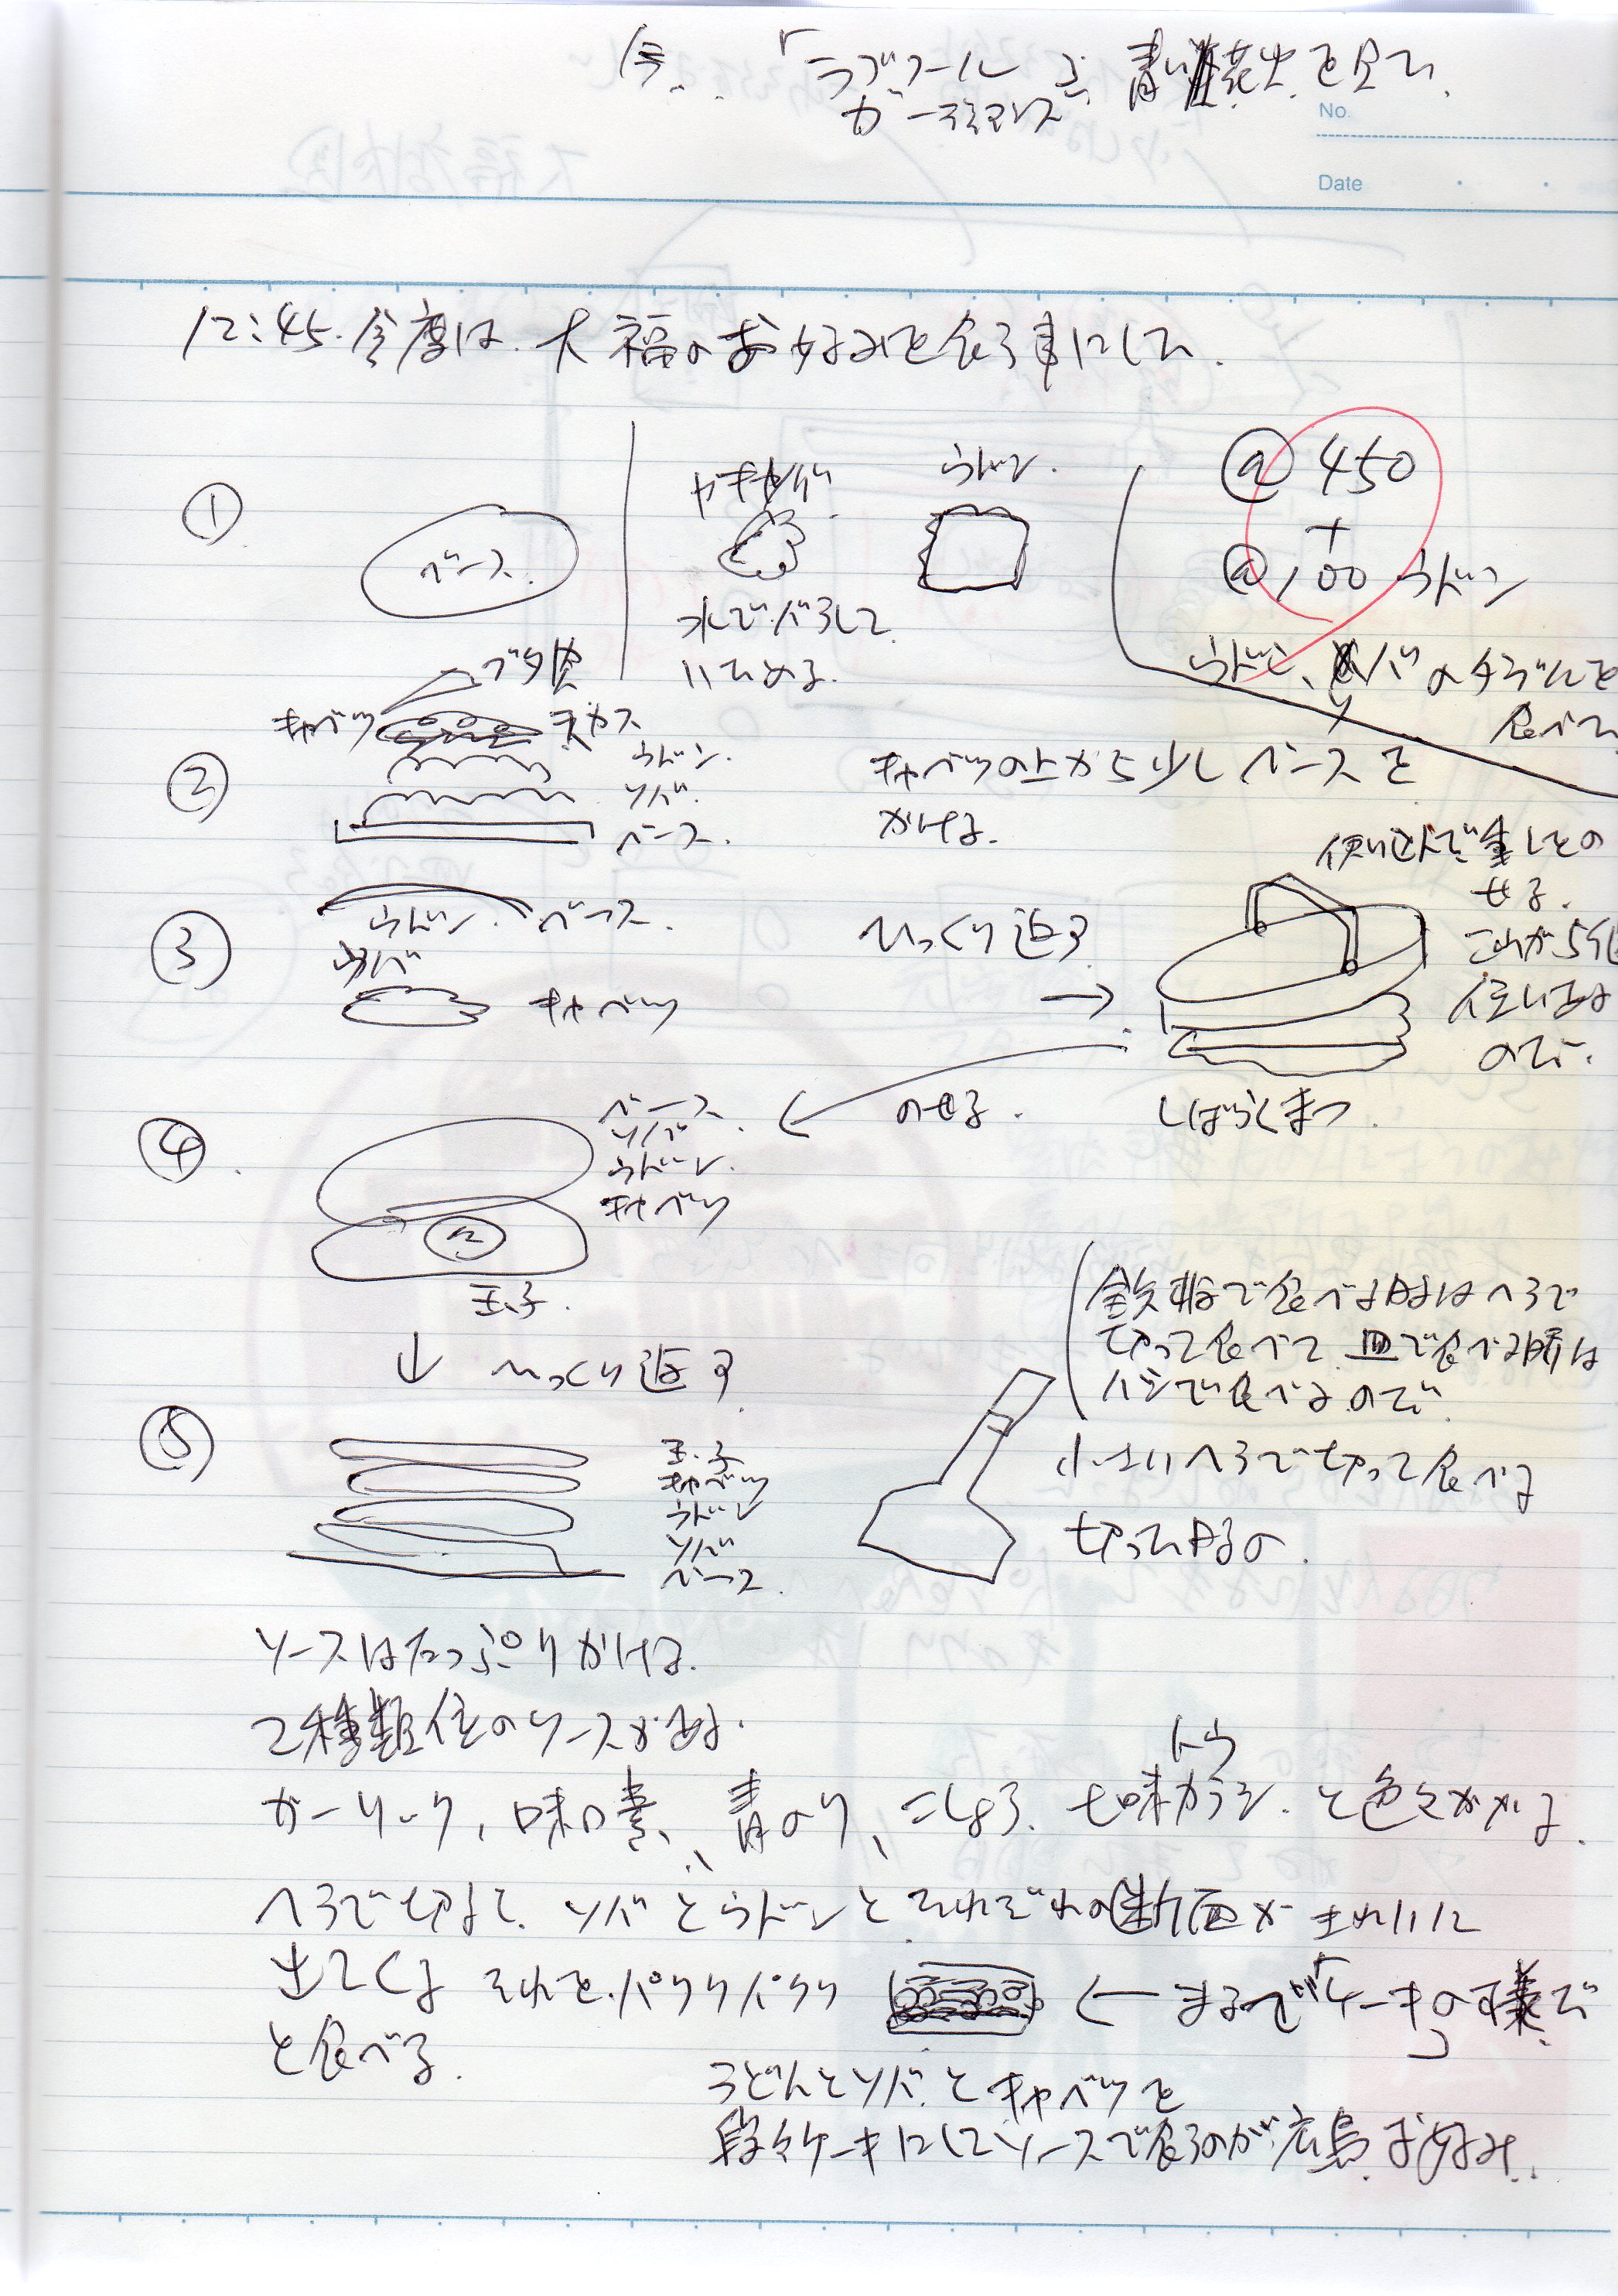 今、「ラブソール
ガーデニアンズ」青い花火を見て、
No.
Date
12:45. 今度は、大福のお好みを食う事にした。
①
ベース
ヤキソバ
水でバラして
いためる。
ウドン
@ 450
+
@ 100 ウドン
ウドン、ソバのダブルを
食べた
②
ブタ肉
キャベツ
天カス
ウドン
ソバ
ベース
キャベツの上から少しベースを
かける。
③
ウドン ベース
ソバ
キャベツ
ひっくり返す
→
使い込んで重しをの
せる。
これが5代
位いある
ので。
しばらくまつ
のせる。
④
ベース
ソバ
ウドン
キャベツ
玉子
↓ ひっくり返す
⑤
玉子
キャベツ
ウドン
ソバ
ベース
鉄板で食べる時はヘラで
切って食べて、皿で食べる時は
ハシで食べるので
小さいヘラで切って食べる
ソースはたっぷりかける。
2種類位のソースがある。
ガーリック、味の素、青のり、こしょう、七味トウガラシ と色々かかる。
ヘラで切ると、ソバとウドンとそれぞれの断面がきれいに
出てくる それをパクリパクリ
と食べる。
← まるで「ケーキ」の様で
うどんとソバとキャベツを
段々ケーキにしてソースで食うのが広島お好み。